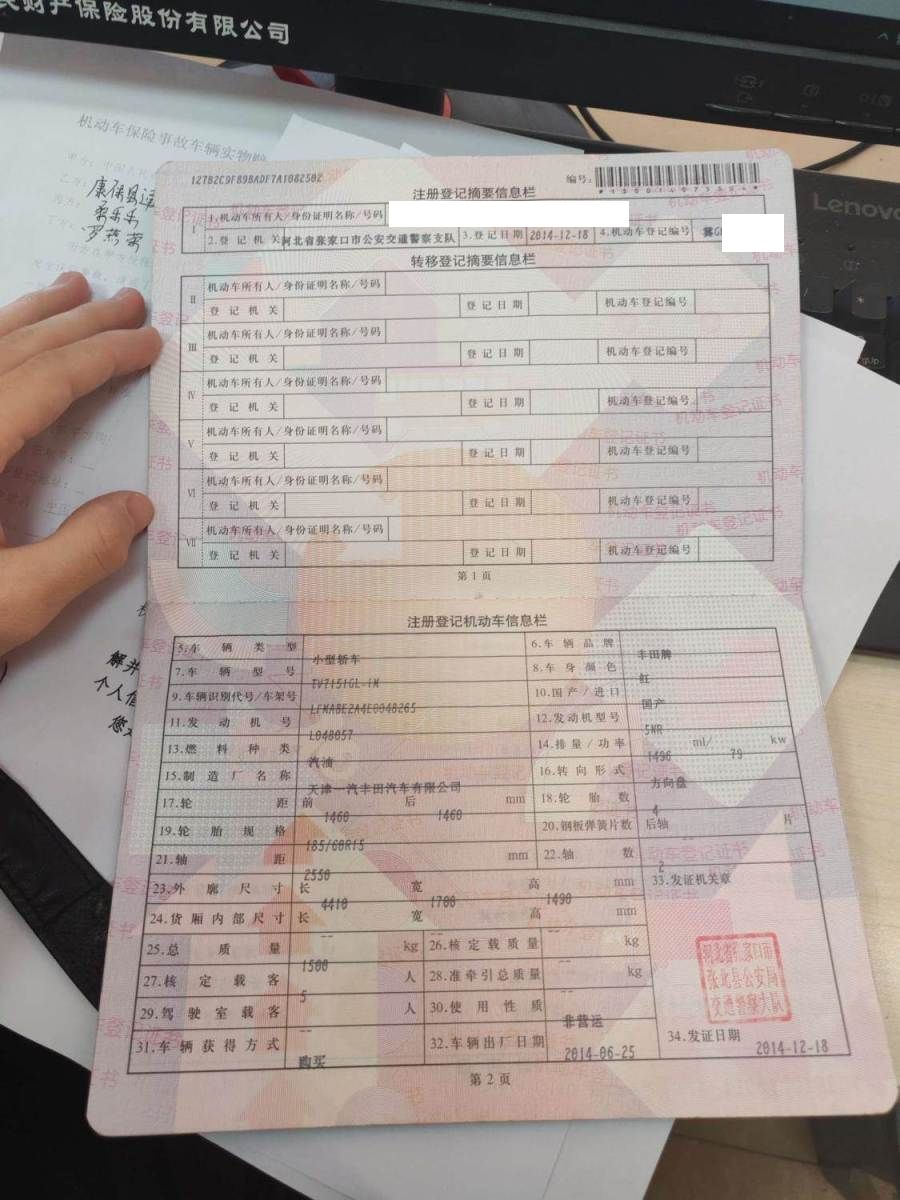 财产保险股份有限公司
机动车保险事故车辆实物
Lenovo
127B2C9F89BADF7A1082502
编号:
注册登记摘要信息栏
I 1.机动车所有人/身份证明名称/号码
2.登记机关 河北省张家口市公安交通警察支队 3.登记日期 2014-12-18 4.机动车登记编号 冀G
转移登记摘要信息栏
II 机动车所有人/身份证明名称/号码
登记机关 登记日期 机动车登记编号
III 机动车所有人/身份证明名称/号码
登记机关 登记日期 机动车登记编号
IV 机动车所有人/身份证明名称/号码
登记机关 登记日期 机动车登记编号
V 机动车所有人/身份证明名称/号码
登记机关 登记日期 机动车登记编号
VI 机动车所有人/身份证明名称/号码
登记机关 登记日期 机动车登记编号
VII 机动车所有人/身份证明名称/号码
登记机关 登记日期 机动车登记编号
第1页
注册登记机动车信息栏
5.车辆类型 小型轿车 6.车辆品牌 丰田牌
7.车辆型号 TV7151GL-iM 8.车身颜色 红
9.车辆识别代号/车架号 LFMABE2A4E0048265 10.国产/进口 国产
11.发动机号 L048057 12.发动机型号 5NR
13.燃料种类 汽油 14.排量/功率 1496 ml/ 79 kw
15.制造厂名称 天津一汽丰田汽车有限公司 16.转向形式 方向盘
17.轮距 前 1460 后 1460 mm 18.轮胎数 4
19.轮胎规格 185/60R15 20.钢板弹簧片数 后轴 -- 片
21.轴距 2550 mm 22.轴数 2
23.外廓尺寸 长 4410 宽 1700 高 1490 mm 33.发证机关章
24.货厢内部尺寸 长 -- 宽 -- 高 -- mm
25.总质量 1500 kg 26.核定载质量 -- kg
27.核定载客 5 人 28.准牵引总质量 -- kg
29.驾驶室载客 -- 人 30.使用性质 非营运
31.车辆获得方式 购买 32.车辆出厂日期 2014-06-25 34.发证日期 2014-12-18
河北省张家口市
张北县公安局
交通警察大队
第2页